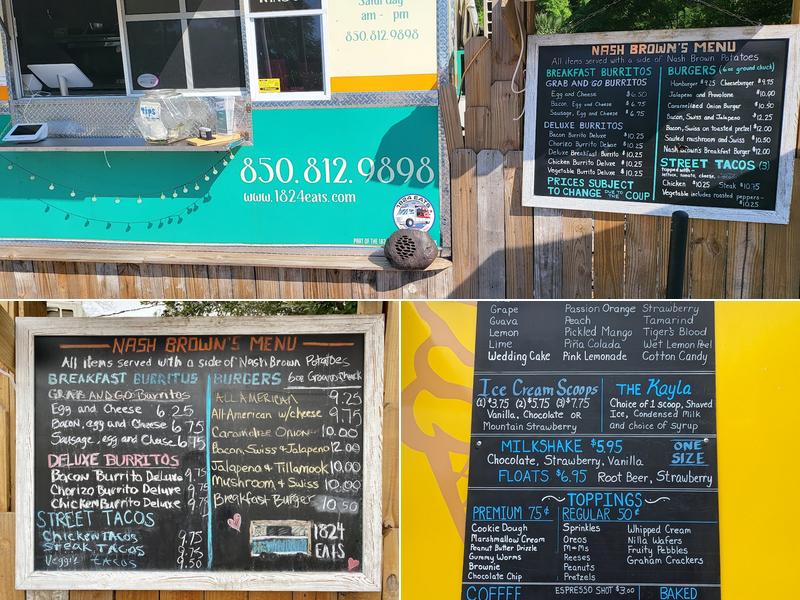 Saturday
am - pm
850.812.9898
tips
850.812.9898
www.1824eats.com
1824 EATS
PART OF THE 18
NASH BROWN'S MENU
All items served with a side of Nash Brown Potatoes
BREAKFAST BURRITOS
GRAB AND GO BURRITOS
Egg and Cheese $6.50
Bacon, Egg and Cheese $6.75
Sausage, Egg and Cheese $6.75
DELUXE BURRITOS
Bacon Burrito Deluxe $10.25
Chorizo Burrito Deluxe $10.25
Deluxe Breakfast Burrito $10.25
Chicken Burrito Deluxe $10.25
Vegetable Burrito Deluxe $10.25
PRICES SUBJECT
TO CHANGE DUE TO THE COUP
BURGERS (6oz ground chuck)
Hamburger $9.25 Cheeseburger $9.75
Jalapeno and Provolone $10.00
Caramelized Onion Burger $10.50
Bacon, Swiss and Jalapeno $12.25
Bacon, Swiss on toasted pretzel $12.00
Sauteed mushroom and Swiss $10.50
Nash Brown's Breakfast Burger $12.00
STREET TACOS (3)
topped with -
lettuce, tomato, cheese,
Chicken $10.25 Steak $10.75
Vegetable includes roasted peppers -
$10.25
NASH BROWN'S MENU
All items served with a side of Nash Brown Potatoes
BREAKFAST BURRITOS
GRAB AND GO Burritos
Egg and Cheese 6.25
Bacon, egg and Cheese 6.75
Sausage, egg and Cheese 6.75
DELUXE BURRITOS
Bacon Burrito Deluxe 9.75
Chorizo Burrito Deluxe 9.75
Chicken Burrito Deluxe 9.75
STREET TACOS
Chicken Tacos 9.75
Steak TACOS 9.75
Veggie tacos 9.50
BURGERS 6oz Ground Chuck
ALL AMERICAN 9.25
All American w/cheese 9.75
Caramelize Onion 10.00
Bacon, Swiss & Jalapeno 12.00
Jalapeno & Tillamook 10.00
Mushroom & Swiss 10.00
Breakfast Burger 10.50
1824
EATS
Grape Passion Orange Strawberry
Guava Peach Tamarind
Lemon Pickled Mango Tiger's Blood
Lime Piña Colada Wet Lemon Peel
Wedding Cake Pink Lemonade Cotton Candy
Ice Cream Scoops
(1) $3.75 (2) $5.75 (3) $7.75
Vanilla, Chocolate or
Mountain Strawberry
THE Kayla
Choice of 1 scoop, Shaved
Ice, Condensed Milk
and choice of syrup
MILKSHAKE $5.95
Chocolate, Strawberry, Vanilla
ONE
SIZE
FLOATS $6.95 Root Beer, Strawberry
TOPPINGS
PREMIUM 75¢
Cookie Dough
Marshmallow Cream
Peanut Butter Drizzle
Gummy Worms
Brownie
Chocolate Chip
REGULAR 50¢
Sprinkles Whipped Cream
Oreos Nilla Wafers
M&Ms Fruity Pebbles
Reeses Graham Crackers
Peanuts
Pretzels
COFFEE ESPRESSO SHOT $3.00 BAKED